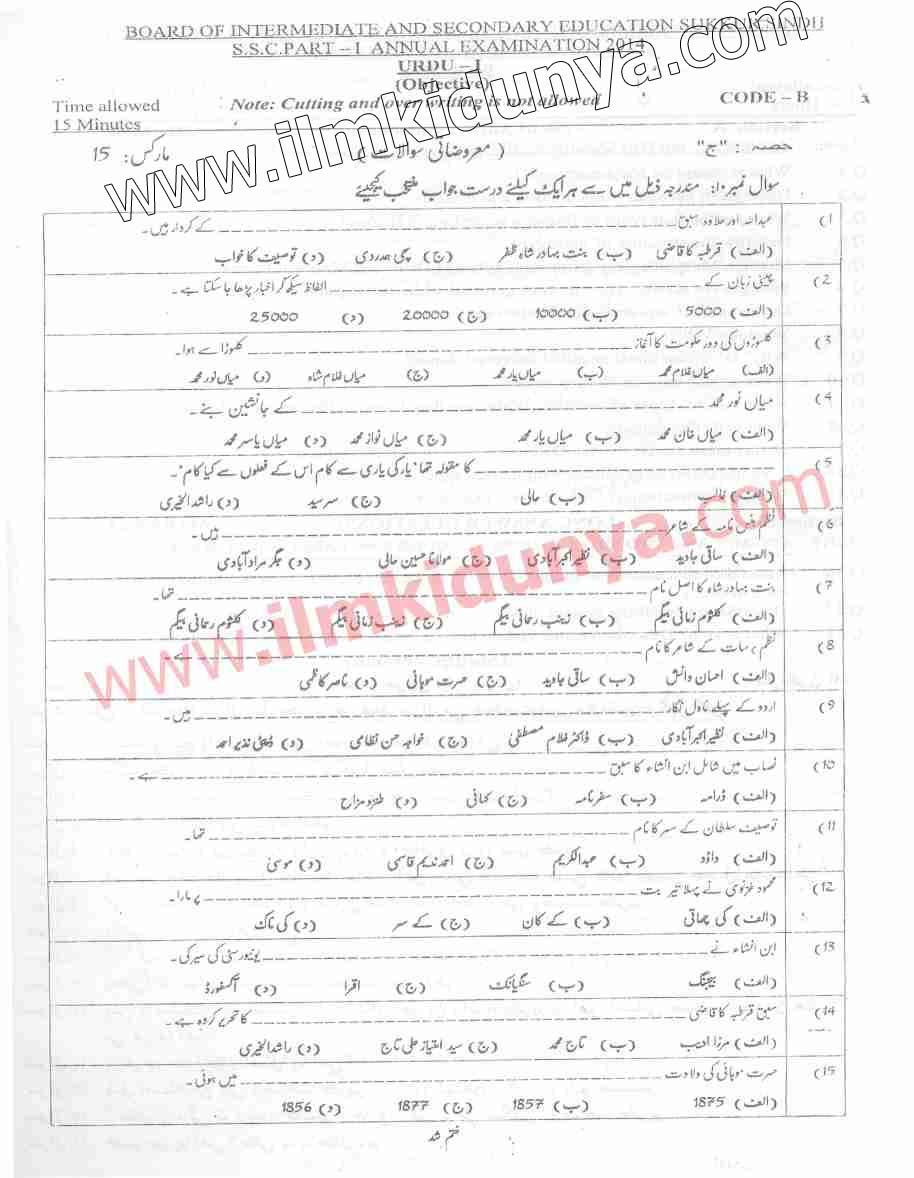 BOARD OF INTERMEDIATE AND SECONDARY EDUCATION SUKKUR SINDH
S.S.C.PART – I ANNUAL EXAMINATION 2014
URDU – I
(Objective)
Time allowed Note: Cutting and over writing is not allowed CODE – B
15 Minutes
حصہ : "ج" ( معروضاتی سوالات ) مارکس: 15
سوال نمبر ۱۰: مندرجہ ذیل میں سے ہر ایک کیلئے درست جواب منتخب کیجیئے
(1 عبداللہ اور حلاوہ سبق ____________ کے کردار ہیں۔
(الف) قرطبہ کا قاضی (ب) بنت بہادر شاہ ظفر (ج) سچی ہمدردی (د) توصیف کا خواب
(2 چینی زبان کے ____________ الفاظ سیکھ کر اخبار پڑھا جا سکتا ہے۔
(الف) 5000 (ب) 10000 (ج) 20000 (د) 25000
(3 کلہوڑوں کی دور حکومت کا آغاز ____________ کلہوڑا سے ہوا۔
(الف) میاں غلام محمد (ب) میاں یار محمد (ج) میاں غلام شاہ (د) میاں نور محمد
(4 میاں نور محمد ____________ کے جانشین بنے۔
(الف) میاں خان محمد (ب) میاں یار محمد (ج) میاں نواز محمد (د) میاں یاسر محمد
(5 ____________ کا مقولہ تھا 'یار کی یاری سے کام اس کے فعلوں سے کیا کام'۔
(الف) غالب (ب) حالی (ج) سرسید (د) راشد الخیری
(6 نظم ہنس نامہ کے شاعر ____________ ہیں۔
(الف) ساقی جاوید (ب) نظیر اکبر آبادی (ج) مولانا حسین حالی (د) جگر مراد آبادی
(7 بنت بہادر شاہ کا اصل نام ____________ تھا۔
(الف) کلثوم زمانی بیگم (ب) زینب رحمانی بیگم (ج) زینب زمانی بیگم (د) کلثوم رحمانی بیگم
(8 نظم برسات کے شاعر کا نام ____________ ہے۔
(الف) احسان دانش (ب) ساقی جاوید (ج) حسرت موہانی (د) ناصر کاظمی
(9 اردو کے پہلے ناول نگار ____________ ہیں۔
(الف) نظیر اکبر آبادی (ب) ڈاکٹر غلام مصطفیٰ (ج) خواجہ حسن نظامی (د) ڈپٹی نذیر احمد
(10 نصاب میں شامل ابن انشاء کا سبق ____________ ہے۔
(الف) ڈرامہ (ب) سفرنامہ (ج) کہانی (د) طنزو مزاح
(11 توصیف سلطان کے سر کا نام ____________ تھا۔
(الف) داؤد (ب) عبدالکریم (ج) احمد ندیم قاسمی (د) موسیٰ
(12 محمود غزنوی نے پہلا تیر بت ____________ پر مارا۔
(الف) کی چھاتی (ب) کے کان (ج) کے سر (د) کی ناک
(13 ابن انشاء نے ____________ یونیورسٹی کی سیر کی۔
(الف) بیجنگ (ب) سنگیانگ (ج) اقرا (د) آکسفورڈ
(14 سبق قرطبہ کا قاضی ____________ کا تحریر کردہ ہے۔
(الف) مرزا ادیب (ب) تاج محمد (ج) سید امتیاز علی تاج (د) راشد الخیری
(15 حسرت موہانی کی ولادت ____________ میں ہوئی۔
(الف) 1875 (ب) 1857 (ج) 1877 (د) 1856
ختم شد
www.ilmkidunya.com
www.ilmkidunya.com